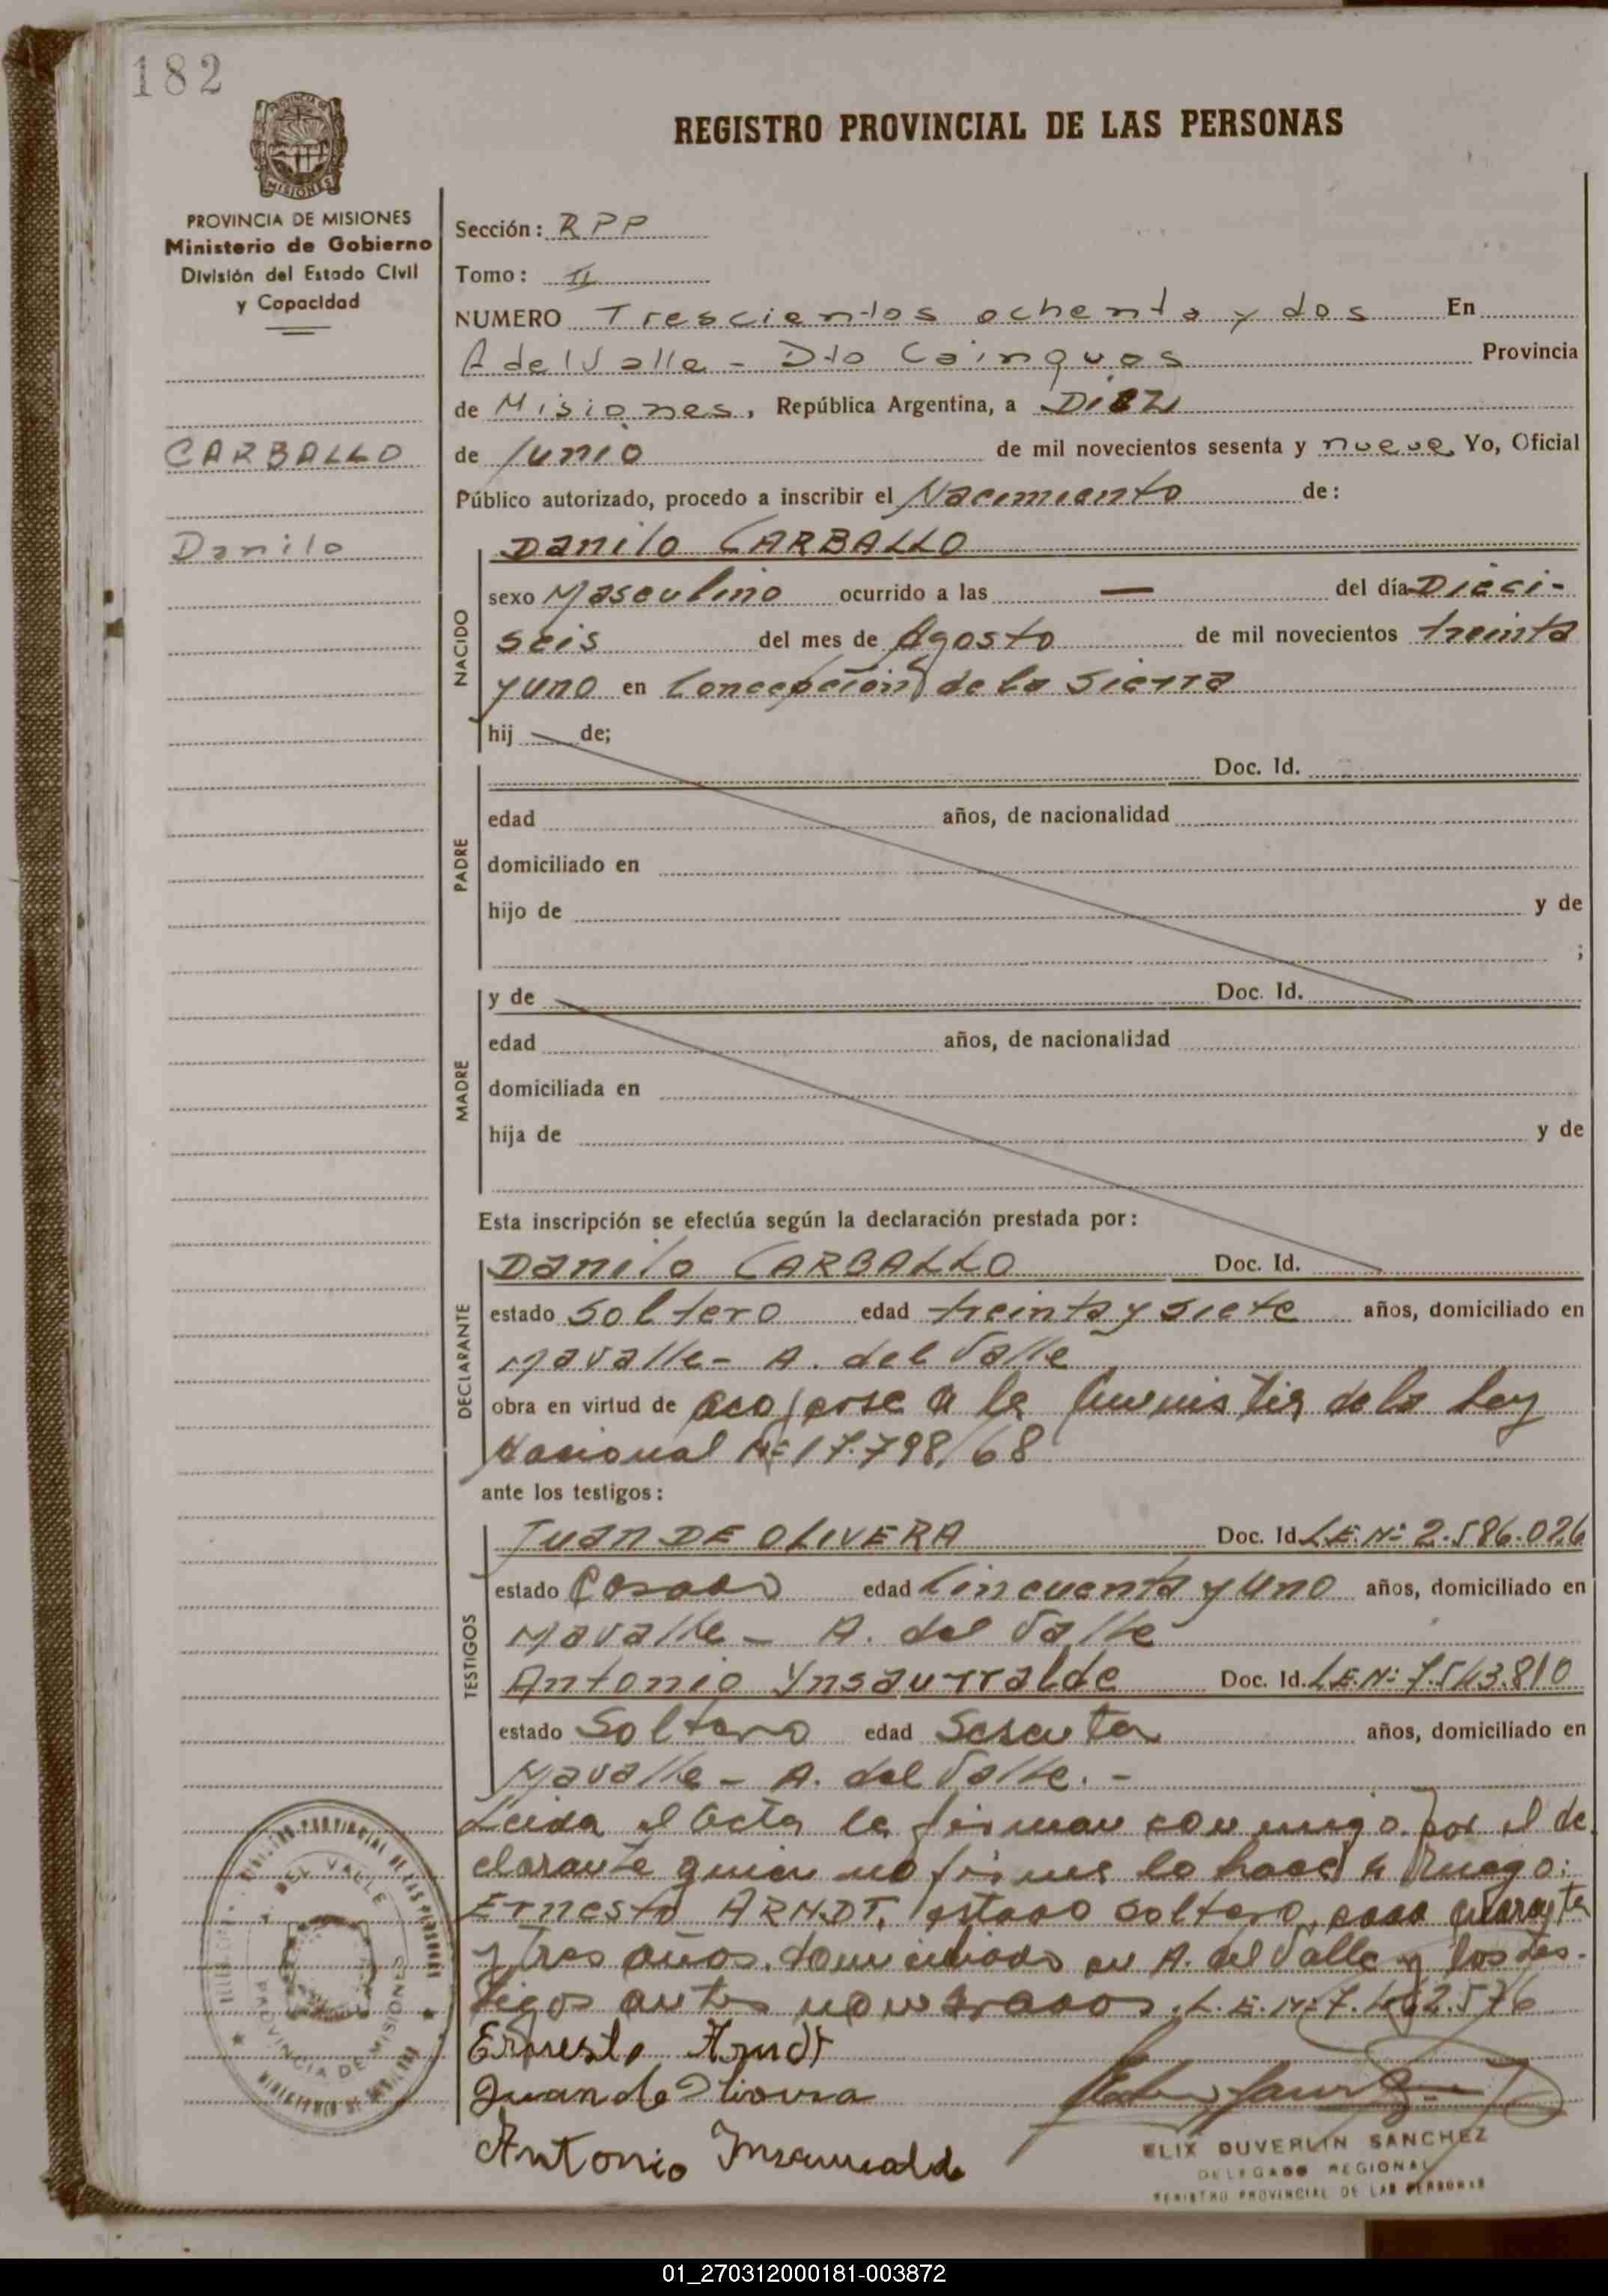 182
REGISTRO PROVINCIAL DE LAS PERSONAS
PROVINCIA DE MISIONES
Ministerio de Gobierno
División del Estado Civil
y Capacidad
CARBALLO
Danilo
Sección: RPP
Tomo: II
NUMERO Trescientos ochenta y dos En
A del Valle - Dto Cainguas Provincia
de Misiones, República Argentina, a Diez
de Junio de mil novecientos sesenta y nueve Yo, Oficial
Público autorizado, procedo a inscribir el Nacimiento de:
NACIDO
Danilo CARBALLO
sexo Masculino ocurrido a las — del día Dieci-
seis del mes de Agosto de mil novecientos treinta
y uno en Concepción de la Sierra
hij de;
PADRE
Doc. Id.
edad años, de nacionalidad
domiciliado en
hijo de y de
;
MADRE
y de Doc. Id.
edad años, de nacionalidad
domiciliada en
hija de y de
Esta inscripción se efectúa según la declaración prestada por:
DECLARANTE
Danilo CARBALLO Doc. Id.
estado Soltero edad treinta y siete años, domiciliado en
Mavalle - A. del Valle
obra en virtud de acojerse a la Amnistia de la Ley
Nacional Nº 17.798/68
ante los testigos:
TESTIGOS
JUAN DE OLIVERA Doc. Id. L.E.Nº 2.586.026
estado Casado edad Cincuenta y uno años, domiciliado en
Mavalle - A. del Valle
Antonio Ynsaurralde Doc. Id. L.E.Nº 7.543.810
estado Soltero edad Sesenta años, domiciliado en
Mavalle - A. del Valle. -
Leida el Acta la firman conmigo por el de
clarante quien no firma lo hace a Ruego:
Ernesto ARNDT, estado soltero, edad cuarenta
y tres años, domiciliado en A. del Valle y los tes-
tigos antes nombrados. L.E.Nº 7.462.576
Ernesto Arndt
Juan de Olivera
Antonio Insaurralde
ELIX DUVERLIN SANCHEZ
DELEGADO REGIONAL
REGISTRO PROVINCIAL DE LAS PERSONAS
DEL VALLE
PROVINCIA DE MISIONES
01_270312000181-003872